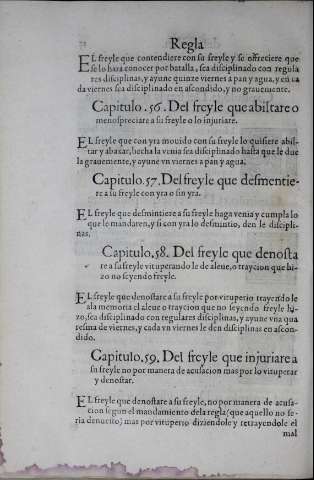 Regla
EL freyle que contendiere con su freyle y se ofreciere que
se lo hara conocer por batalla, sea disciplinado con regula
res disciplinas, y ayune quinze viernes a pan y agua, y en ca
da viernes sea disciplinado en ascondido, y no grauemente.
Capitulo .56. Del freyle que abiltare o
menospreciare a su freyle o lo injuriare.
EL freyle que con yra mouido con su freyle lo quisiere abil-
tar y abaxar, hecha la venia sea disciplinado hasta que le due
la graueniente, y ayune vn viernes a pan y agua.
Capitulo. 57. Del freyle que desmentie-
re a su freyle con yra o sin yra.
EL freyle que desmintiere a su freyle haga venia y cumpla lo
que le mandaren, y si con yra lo desmintio, den le discipli-
nas.
Capitulo. 58. Del freyle que denosta
re a su freyle vituperando le de aleue, o traycion que hi-
zo no seyendo freyle.
EL freyle que denostare a su freyle por vituperio trayendo le
a la memoria el aleue o traycion que no seyendo freyle hi-
zo, sea disciplinado con regulares disciplinas, y ayune vna qua
resma de viernes, y cada vn viernes le den disciplinas en ascon-
dido.
Capitulo. 59. Del freyle que injuriare a
su freyle no por manera de acusacion mas por lo vituperar
y denostar.
EL freyle que denostare a su freyle, no por manera de acusa-
cion segun el mandamiento de la regla (que aquello no se-
ria denuesto) mas por vituperio diziendole y retrayendole el
mal